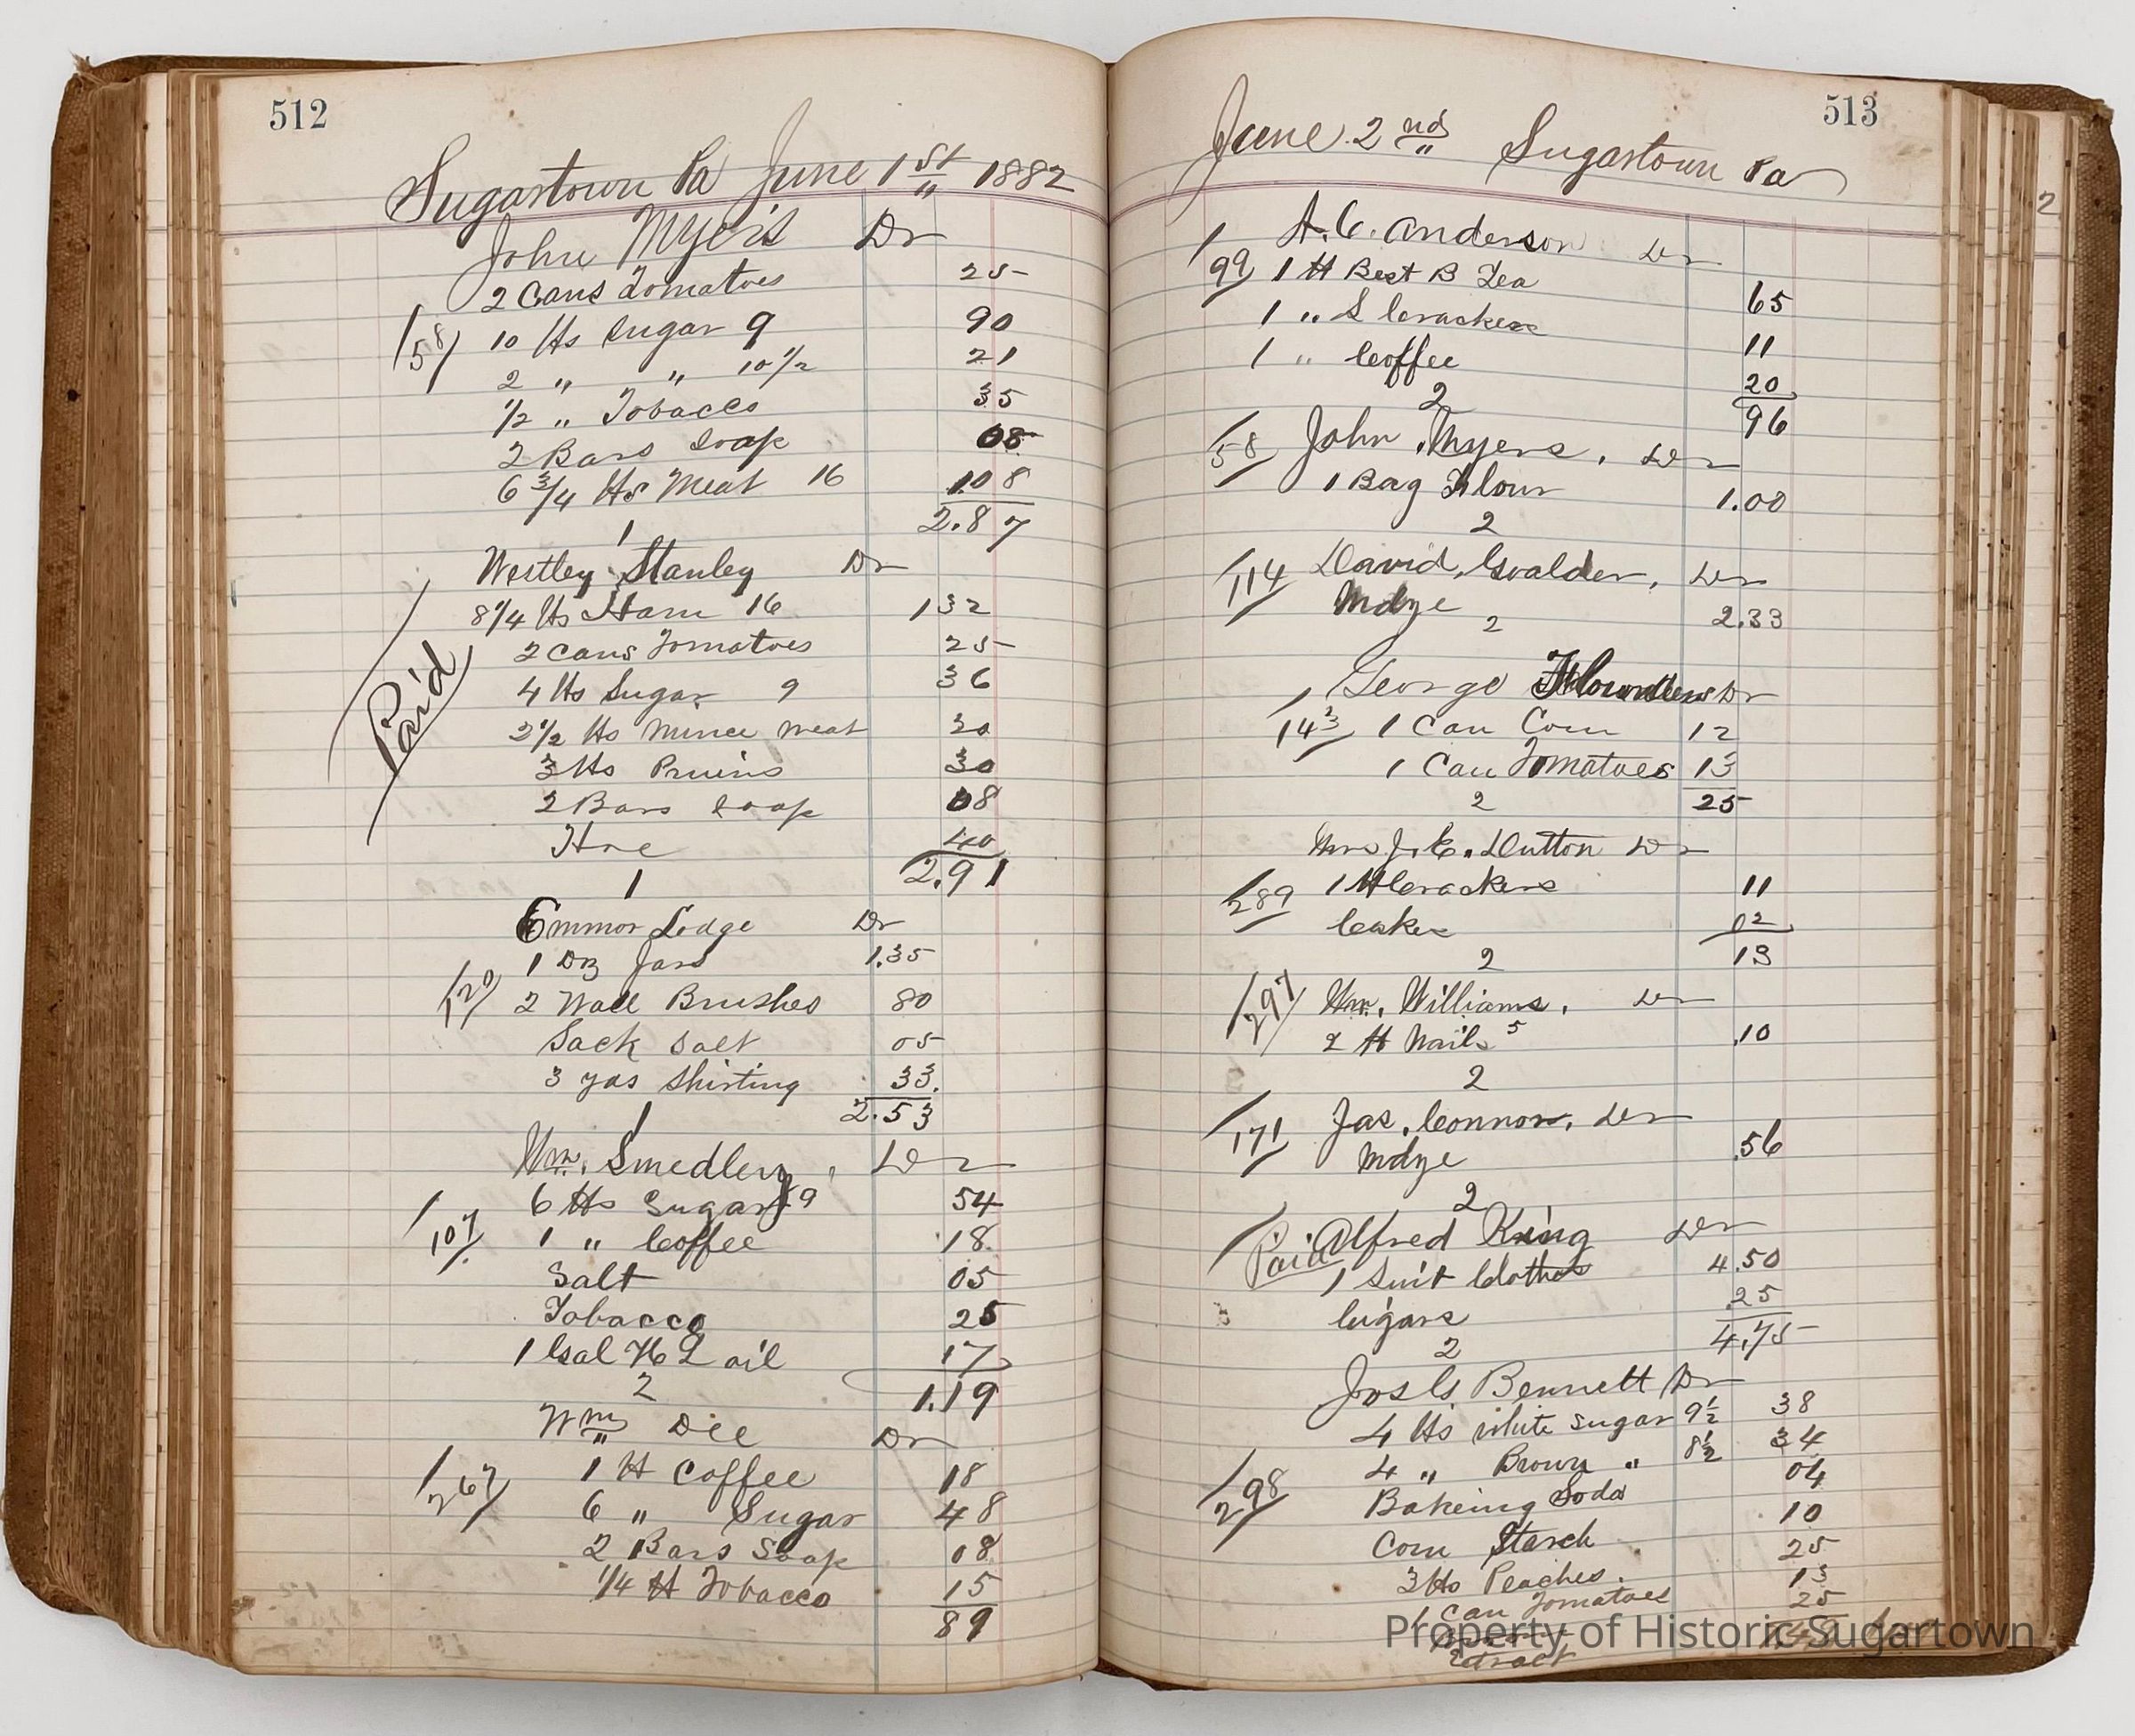 512
Sugartown Pa June 1st 1882
John Myers Dr
2 Cans Tomatoes 25
158 10 lbs Sugar 9 90
2 " " 10 1/2 21
1/2 " Tobacco 35
2 Bars Soap 08
6 3/4 lbs Meat 16 108
2.87
1
Westley Stanley Dr
8 1/4 lbs Ham 16 132
Paid
2 Cans Tomatoes 25
4 lbs Sugar 9 36
2 1/2 lbs Mince meat 20
3 lbs Pruins 30
2 Bars Soap 08
Hoe 40
2.91
1
Emmor Lodge Dr
1 Doz Jars 1.35
120 2 Wall Brushes 80
Sack Salt 05
3 yds Shirting 33.
2.53
1
Wm. Smedley, Dr
6 lbs Sugar 9 54
107 1 " Coffee 18
Salt 05
Tobacco 25
1 Gal H L oil 17
1.19
2
Wm Dee Dr
267 1 lb Coffee 18
6 " Sugar 48
2 Bars Soap 08
1/4 lb Tobacco 15
89
513
June 2nd Sugartown Pa
A. C. Anderson Dr
99 1 lb Best B Tea 65
1 " S Crackers 11
1 " Coffee 20
2 96
58 John Myers. Dr
1 Bag Flour 1.00
2
114 David Gualder, Dr
Mdze 2.33
2
George Flounders Dr
143 1 Can Corn 12
1 Can Tomatoes 13
2 25
Mrs J. E. Dutton Dr
289 1 lb Crackers 11
Cakes 02
2 13
297 Wm. Williams, Dr
2 lb Nails 5 .10
2
171 Jas. Connor, Dr
Mdze .56
2
Paid Alfred King Dr
1 Suit Clothes 4.50
Cigars .25
2 4.75
Jos G Bennett Dr
4 lbs white Sugar 9 1/2 38
4 " Brown " 8 1/2 34
298 Bakeing Soda 04
Corn Starch 10
3 lbs Peaches. 25
1 Can Tomatoes 13
25
Extract
Property of Historic Sugartown
2